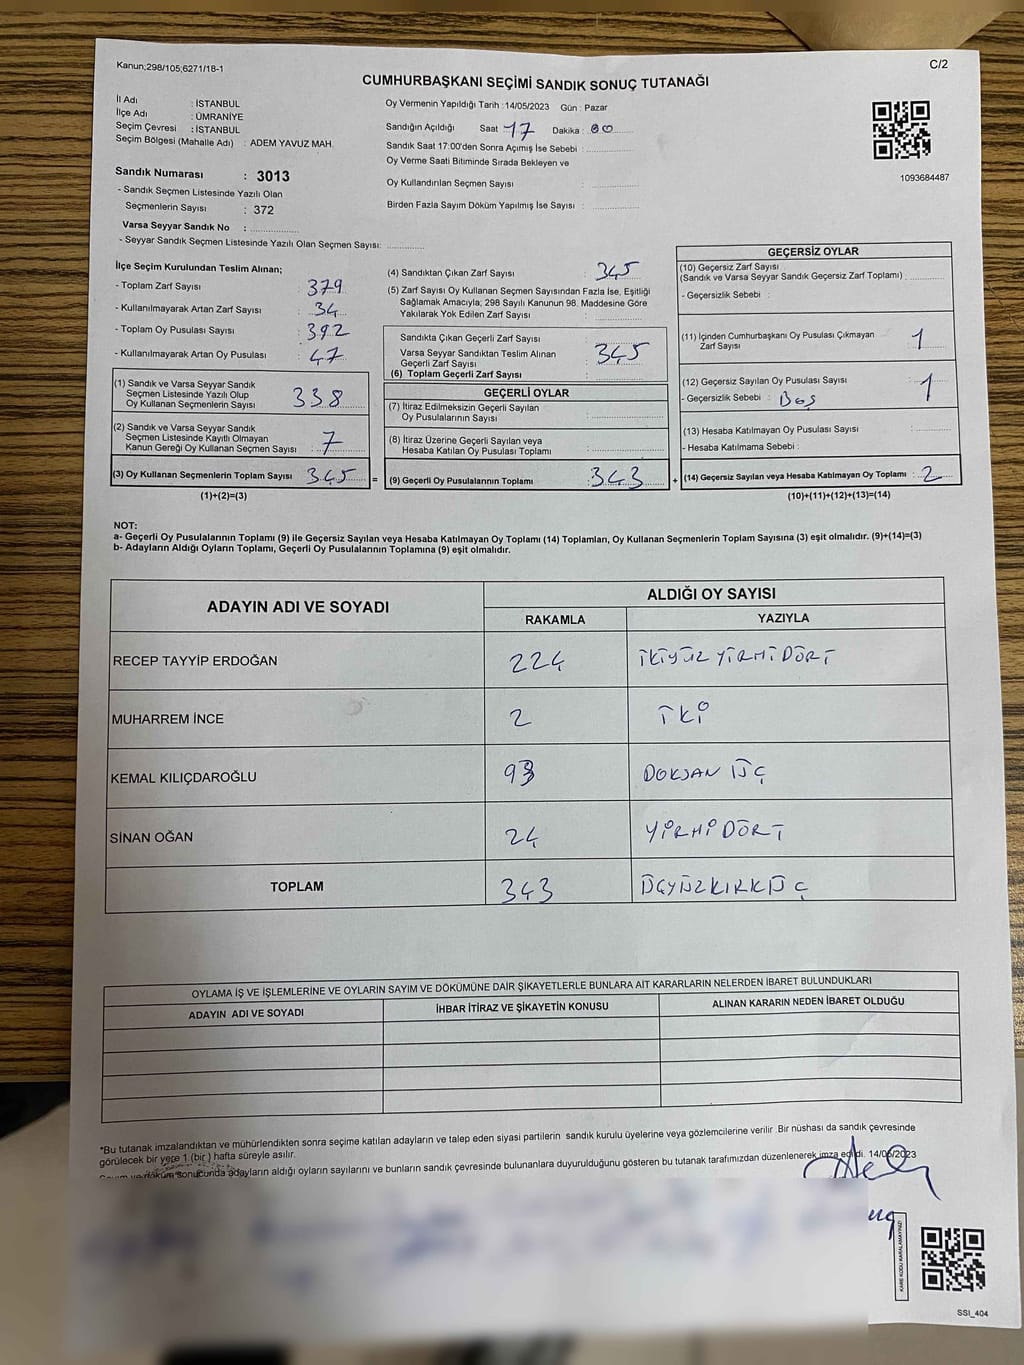 Kanun;298/105;6271/18-1
C/2
CUMHURBAŞKANI SEÇİMİ SANDIK SONUÇ TUTANAĞI
İl Adı : İSTANBUL
İlçe Adı : ÜMRANİYE
Seçim Çevresi : İSTANBUL
Seçim Bölgesi (Mahalle Adı) : ADEM YAVUZ MAH.
Sandık Numarası : 3013
- Sandık Seçmen Listesinde Yazılı Olan
Seçmenlerin Sayısı : 372
Varsa Seyyar Sandık No :
- Seyyar Sandık Seçmen Listesinde Yazılı Olan Seçmen Sayısı:
Oy Vermenin Yapıldığı Tarih :14/05/2023 Gün : Pazar
Sandığın Açıldığı Saat 17 Dakika : 00
Sandık Saat 17:00'den Sonra Açımış İse Sebebi :
Oy Verme Saati Bitiminde Sırada Bekleyen ve
Oy Kullandırılan Seçmen Sayısı :
Birden Fazla Sayım Döküm Yapılmış İse Sayısı :
1093684487
İlçe Seçim Kurulundan Teslim Alınan;
- Toplam Zarf Sayısı : 379
- Kullanılmayarak Artan Zarf Sayısı : 34
- Toplam Oy Pusulası Sayısı : 392
- Kullanılmayarak Artan Oy Pusulası : 47
(1) Sandık ve Varsa Seyyar Sandık
Seçmen Listesinde Yazılı Olup
Oy Kullanan Seçmenlerin Sayısı : 338
(2) Sandık ve Varsa Seyyar Sandık
Seçmen Listesinde Kayıtlı Olmayan
Kanun Gereği Oy Kullanan Seçmen Sayısı : 7
(3) Oy Kullanan Seçmenlerin Toplam Sayısı : 345 =
(1)+(2)=(3)
(4) Sandıktan Çıkan Zarf Sayısı : 345
(5) Zarf Sayısı Oy Kullanan Seçmen Sayısından Fazla İse, Eşitliği
Sağlamak Amacıyla; 298 Sayılı Kanunun 98. Maddesine Göre
Yakılarak Yok Edilen Zarf Sayısı :
Sandıkta Çıkan Geçerli Zarf Sayısı :
Varsa Seyyar Sandıktan Teslim Alınan
Geçerli Zarf Sayısı : 345
(6) Toplam Geçerli Zarf Sayısı :
GEÇERLİ OYLAR
(7) İtiraz Edilmeksizin Geçerli Sayılan
Oy Pusulalarının Sayısı :
(8) İtiraz Üzerine Geçerli Sayılan veya
Hesaba Katılan Oy Pusulası Toplamı :
(9) Geçerli Oy Pusulalarının Toplamı : 343 +
GEÇERSİZ OYLAR
(10) Geçersiz Zarf Sayısı
(Sandık ve Varsa Seyyar Sandık Geçersiz Zarf Toplamı) :
- Geçersizlik Sebebi :
(11) İçinden Cumhurbaşkanı Oy Pusulası Çıkmayan
Zarf Sayısı : 1
(12) Geçersiz Sayılan Oy Pusulası Sayısı : 1
- Geçersizlik Sebebi : Boş
(13) Hesaba Katılmayan Oy Pusulası Sayısı :
- Hesaba Katılmama Sebebi :
(14) Geçersiz Sayılan veya Hesaba Katılmayan Oy Toplamı : 2
(10)+(11)+(12)+(13)=(14)
NOT:
a- Geçerli Oy Pusulalarının Toplamı (9) ile Geçersiz Sayılan veya Hesaba Katılmayan Oy Toplamı (14) Toplamları, Oy Kullanan Seçmenlerin Toplam Sayısına (3) eşit olmalıdır. (9)+(14)=(3)
b- Adayların Aldığı Oyların Toplamı, Geçerli Oy Pusulalarının Toplamına (9) eşit olmalıdır.
ADAYIN ADI VE SOYADI
ALDIĞI OY SAYISI
RAKAMLA YAZIYLA
RECEP TAYYİP ERDOĞAN 224 İKİYÜZ YİRMİ DÖRT
MUHARREM İNCE 2 İKİ
KEMAL KILIÇDAROĞLU 93 DOKSAN ÜÇ
SİNAN OĞAN 24 YİRMİ DÖRT
TOPLAM 343 ÜÇYÜZKIRKÜÇ
OYLAMA İŞ VE İŞLEMLERİNE VE OYLARIN SAYIM VE DÖKÜMÜNE DAİR ŞİKAYETLERLE BUNLARA AİT KARARLARIN NELERDEN İBARET BULUNDUKLARI
ADAYIN ADI VE SOYADI İHBAR İTİRAZ VE ŞİKAYETİN KONUSU ALINAN KARARIN NEDEN İBARET OLDUĞU
*Bu tutanak imzalandıktan ve mühürlendikten sonra seçime katılan adayların ve talep eden siyasi partilerin sandık kurulu üyelerine veya gözlemcilerine verilir .Bir nüshası da sandık çevresinde
görülecek bir yere 1.(bir ) hafta süreyle asılır.
sonucunda adayların aldığı oyların sayılarını ve bunların sandık çevresinde bulunanlara duyurulduğunu gösteren bu tutanak tarafımızdan düzenlenerek imza edildi. 14/05/2023
KARE KODU KARALAMAYINIZ!
SSI_404